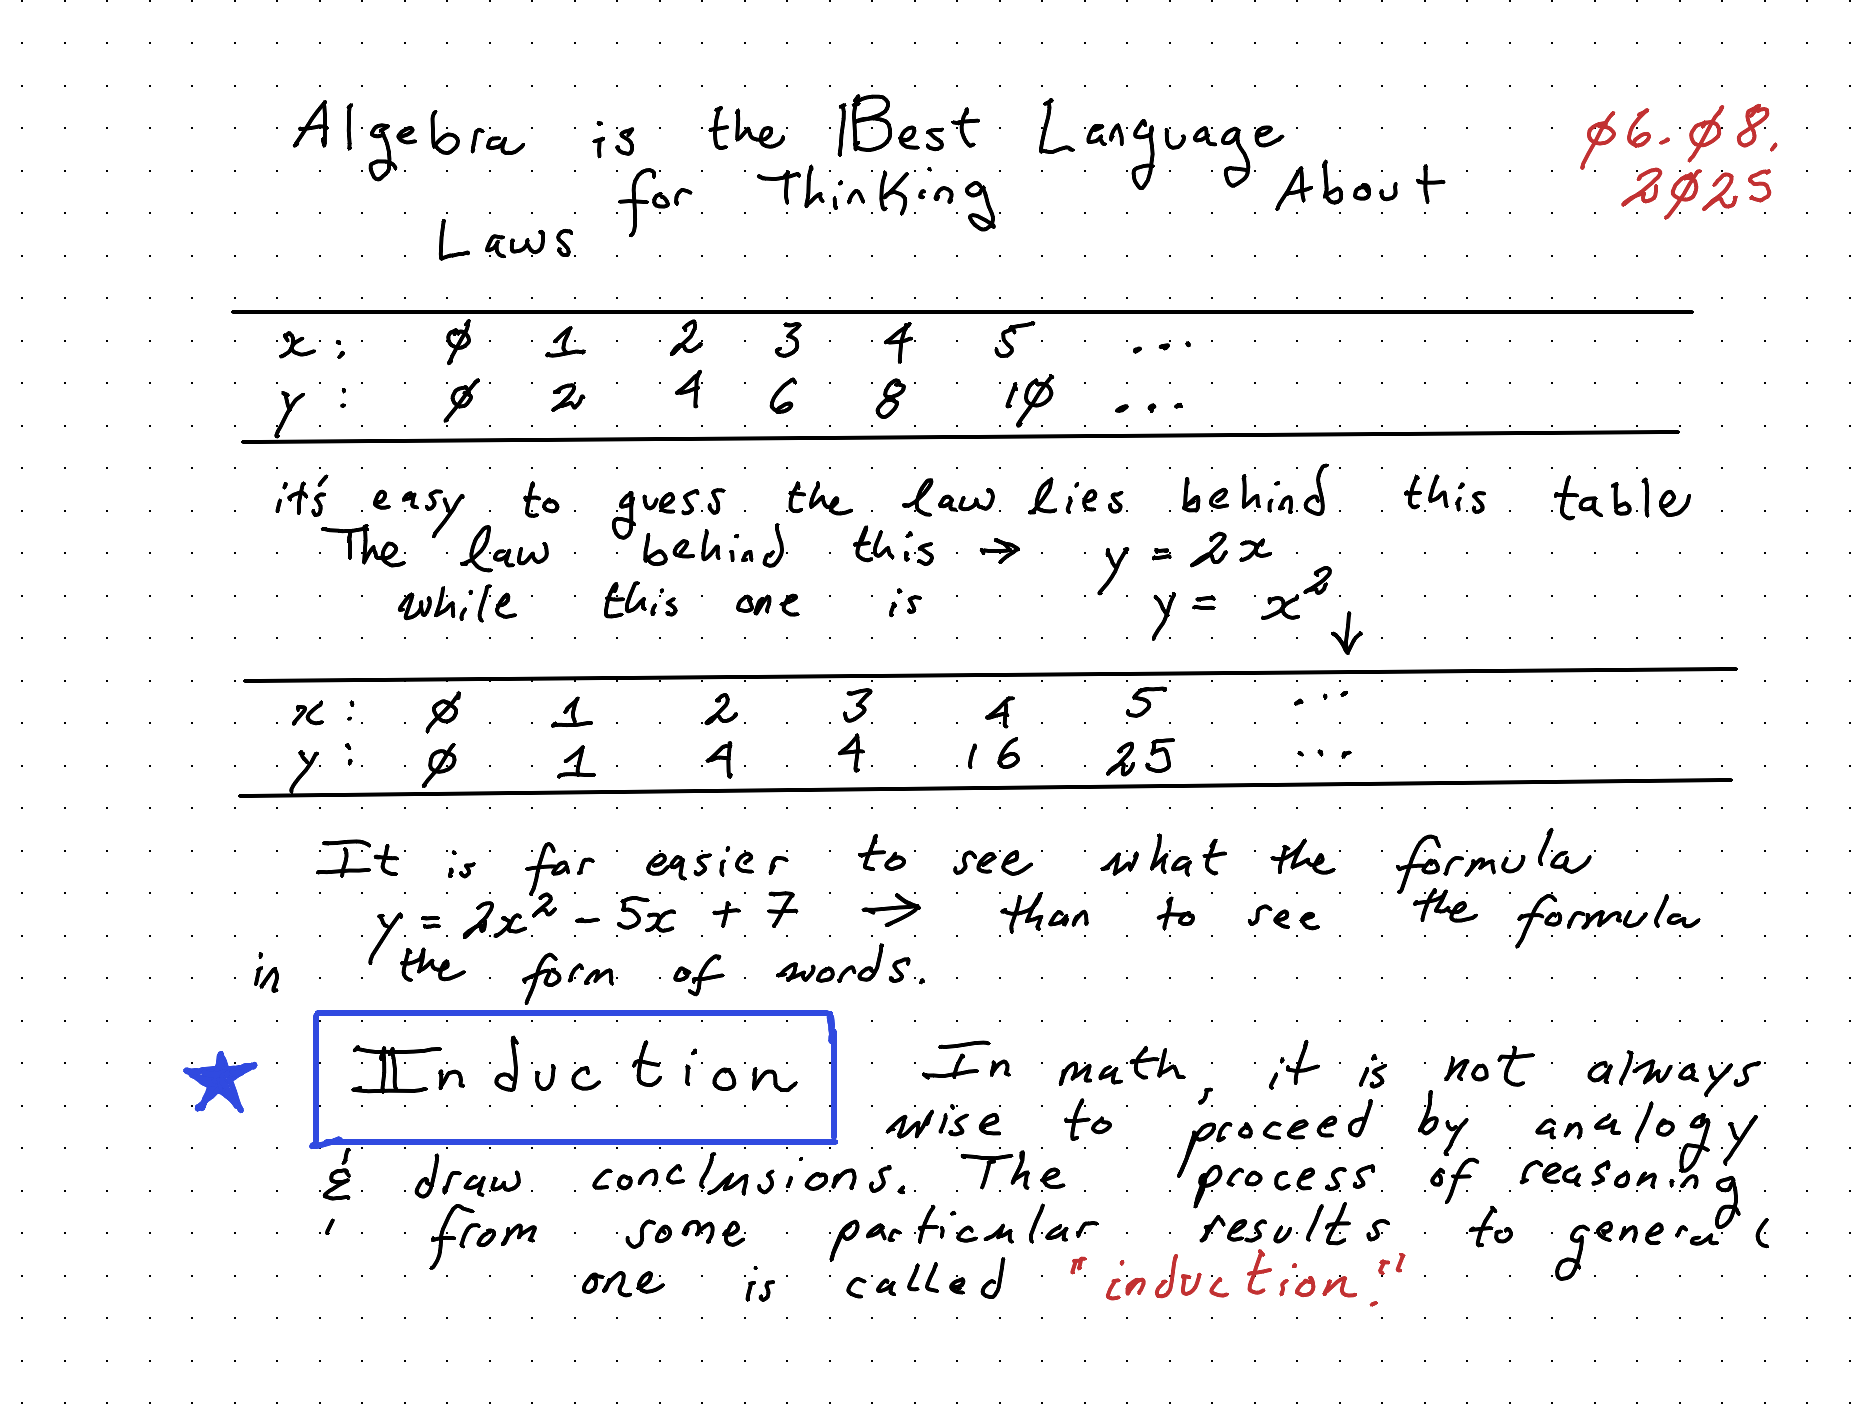 Algebra is the Best Language
for Thinking About
Laws
06.08.
2025
x: 0 1 2 3 4 5 ...
y: 0 2 4 6 8 10 ...
it's easy to guess the law lies behind this table
The law behind this → y = 2x
while this one is y = x²
↓
x: 0 1 2 3 4 5 ...
y: 0 1 4 4 16 25 ...
It is far easier to see what the formula
y = 2x² - 5x + 7 → than to see the formula
in the form of words.
★ Induction In math, it is not always
wise to proceed by analogy
& draw conclusions. The process of reasoning
from some particular results to general
one is called "induction."